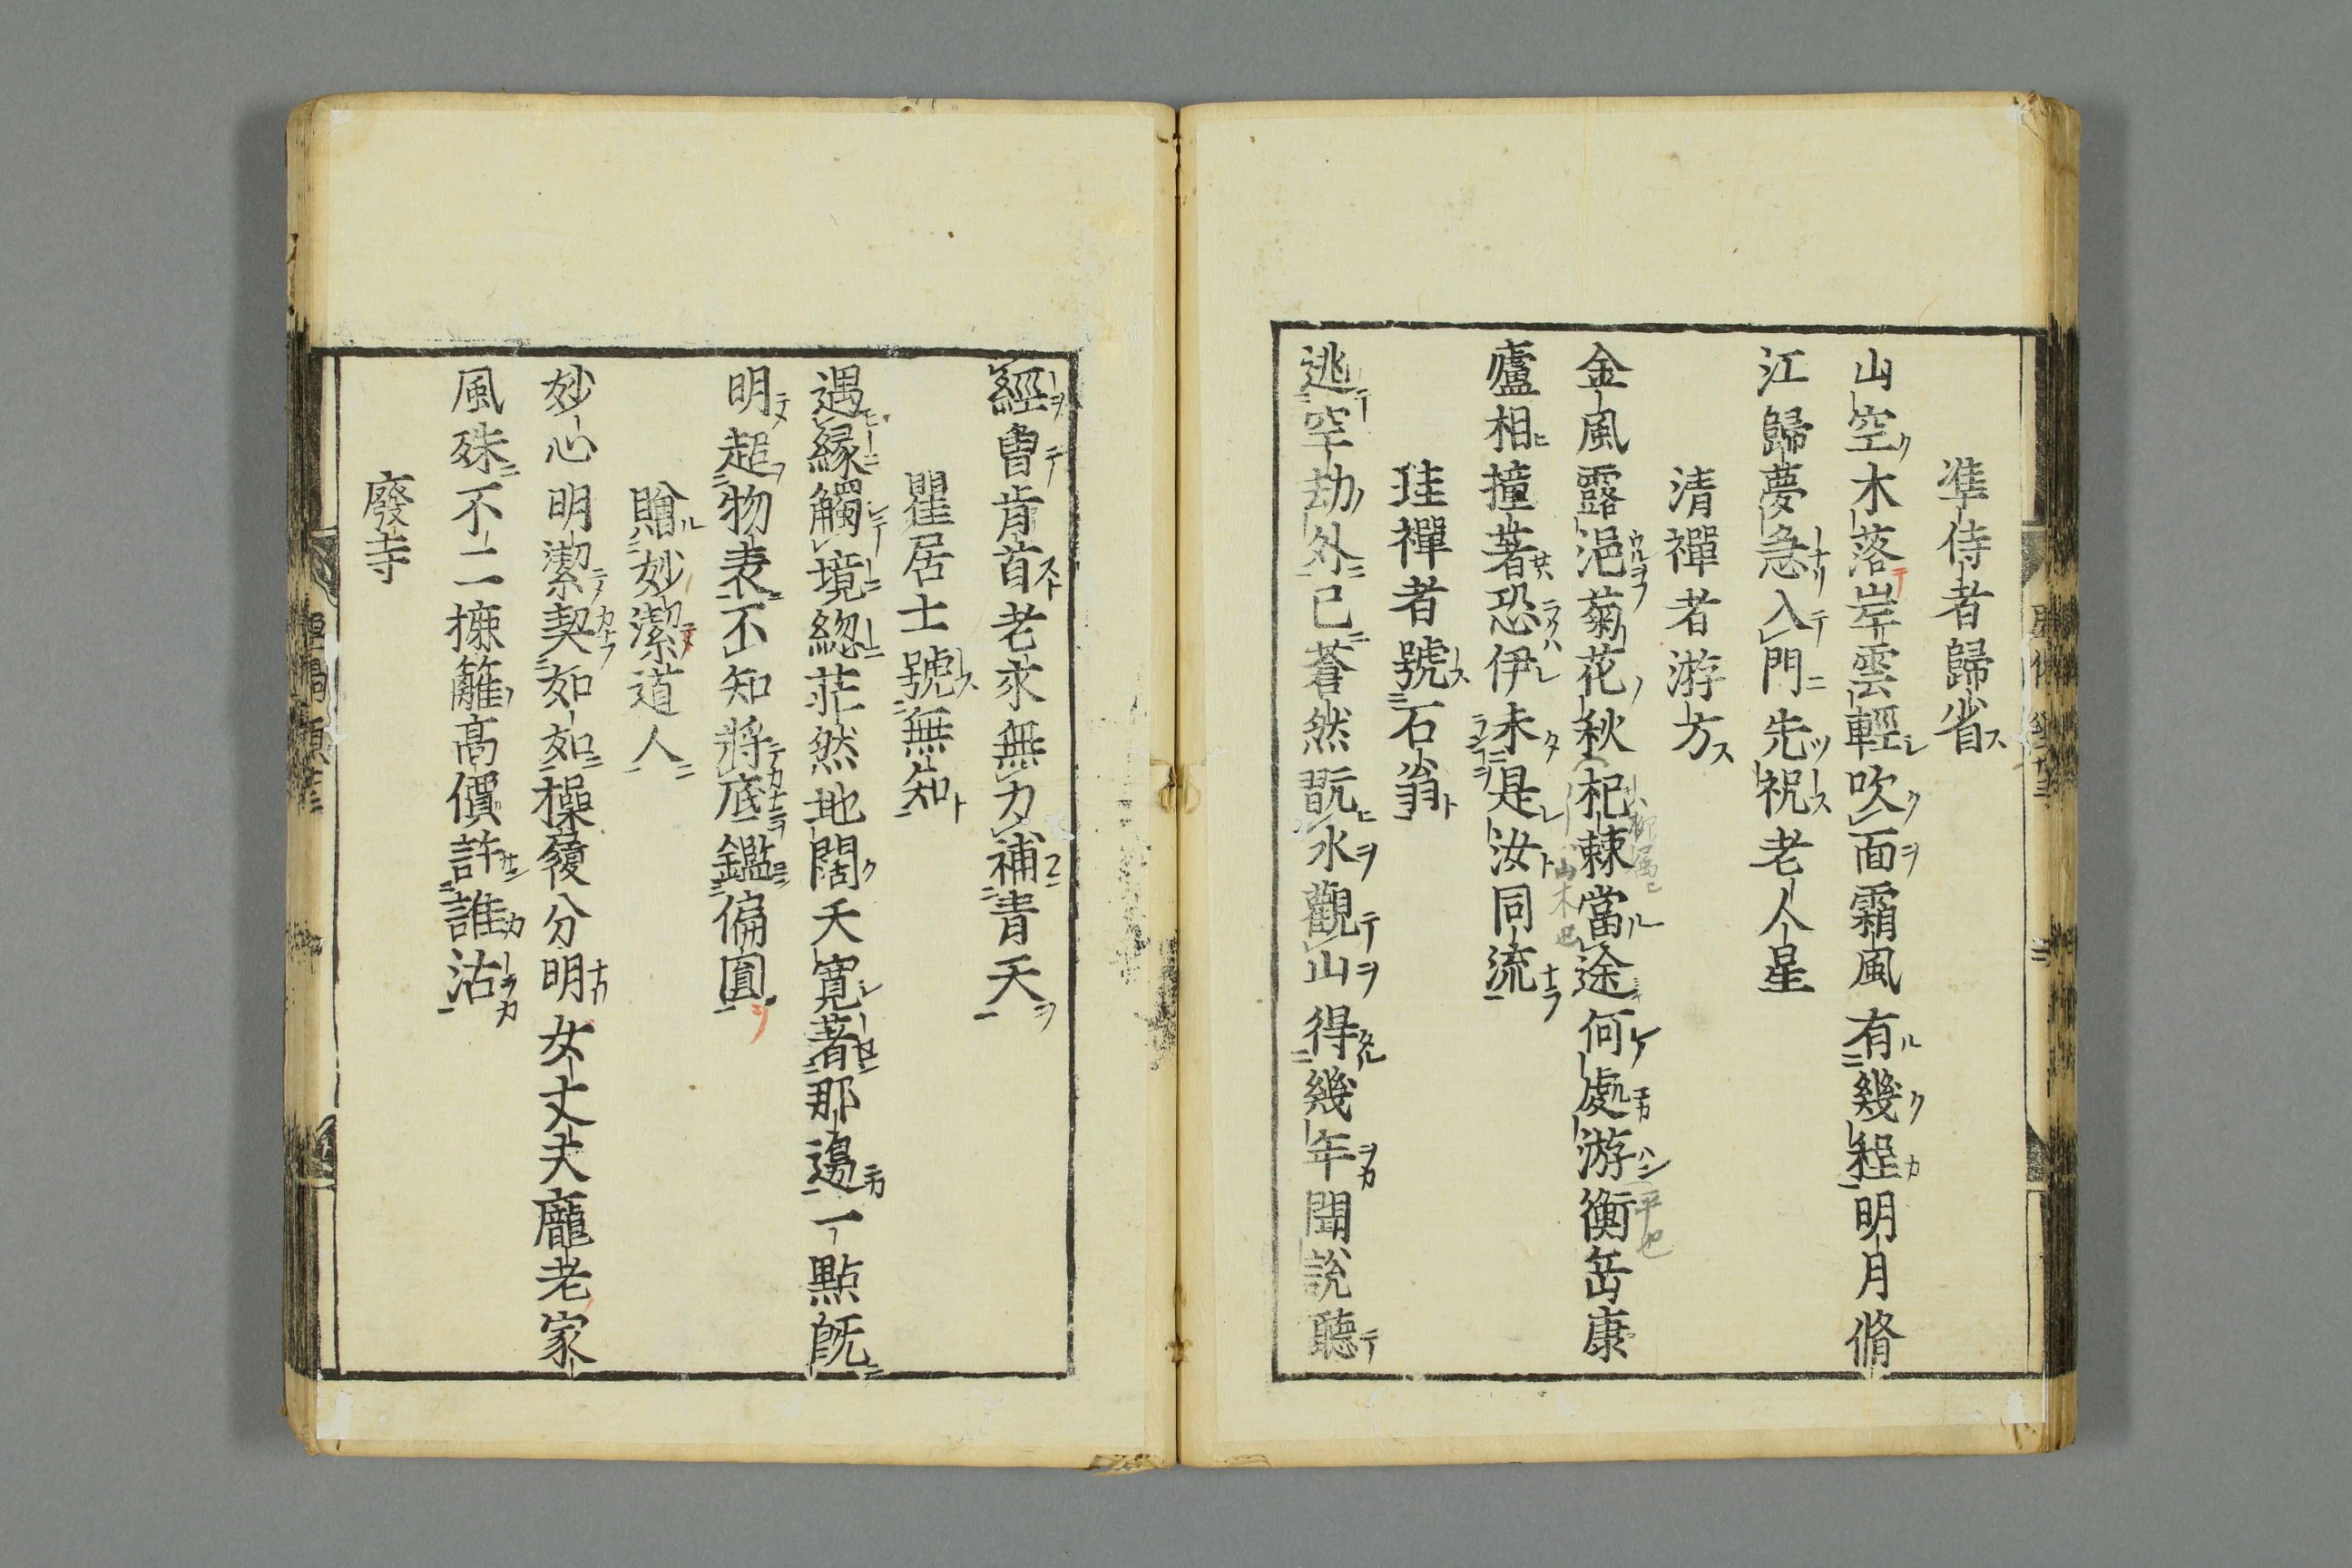 準侍者歸省
山空木落岸雲輕吹面霜風有幾程明月脩
江歸夢急入門先祝老人星
清禪者游方
金風露浥菊花秋杞棘當途何處游衡岳康
廬相撞著恐伊未是汝同流
珪禪者號石翁
逃空劫外已蒼然翫水觀山得幾年聞說聽
經曾肯首老求無力補青天
瞿居士號無知
遇緣觸境緫茫然地闊天寬著那邊一點既
明超物表不知將底鑑偏圓
贈妙潔道人
妙心明潔契如如操履分明女丈夫龐老家
風殊不二㨿籬高價許誰沽
廢寺